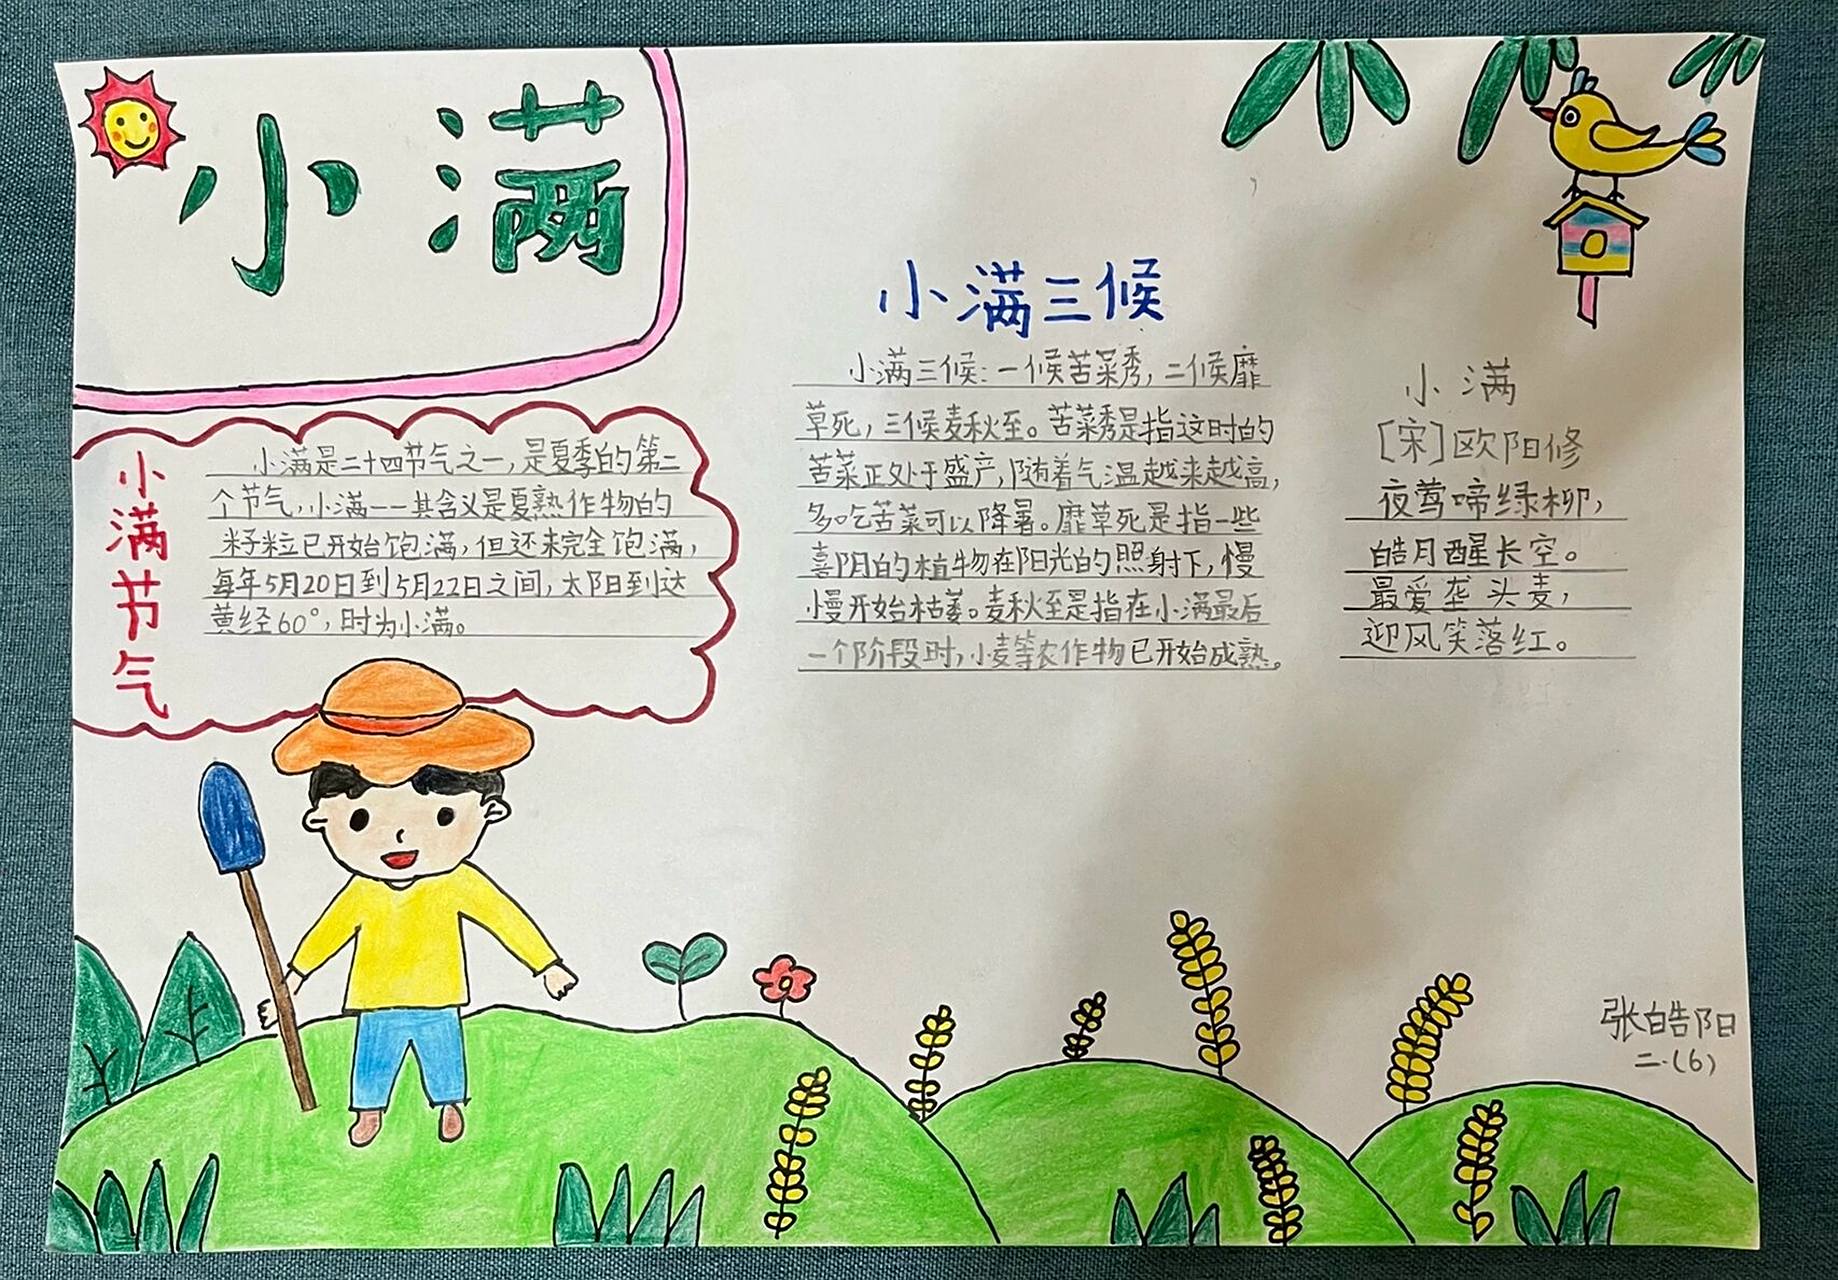 小满
小满节气
小满是二十四节气之一，是夏季的第二
个节气，小满——其含义是夏熟作物的
籽粒已开始饱满，但还未完全饱满，
每年5月20日到5月22日之间，太阳到达
黄经60°，时为小满。
小满三候
小满三候：一候苦菜秀，二候靡
草死，三候麦秋至。苦菜秀是指这时的
苦菜正处于盛产，随着气温越来越高，
多吃苦菜可以降暑。靡草死是指一些
喜阴的植物在阳光的照射下，慢
慢开始枯萎。麦秋至是指在小满最后
一个阶段时，小麦等农作物已开始成熟。
小满
[宋]欧阳修
夜莺啼绿柳，
皓月醒长空。
最爱垄头麦，
迎风笑落红。
张皓阳
二·(6)